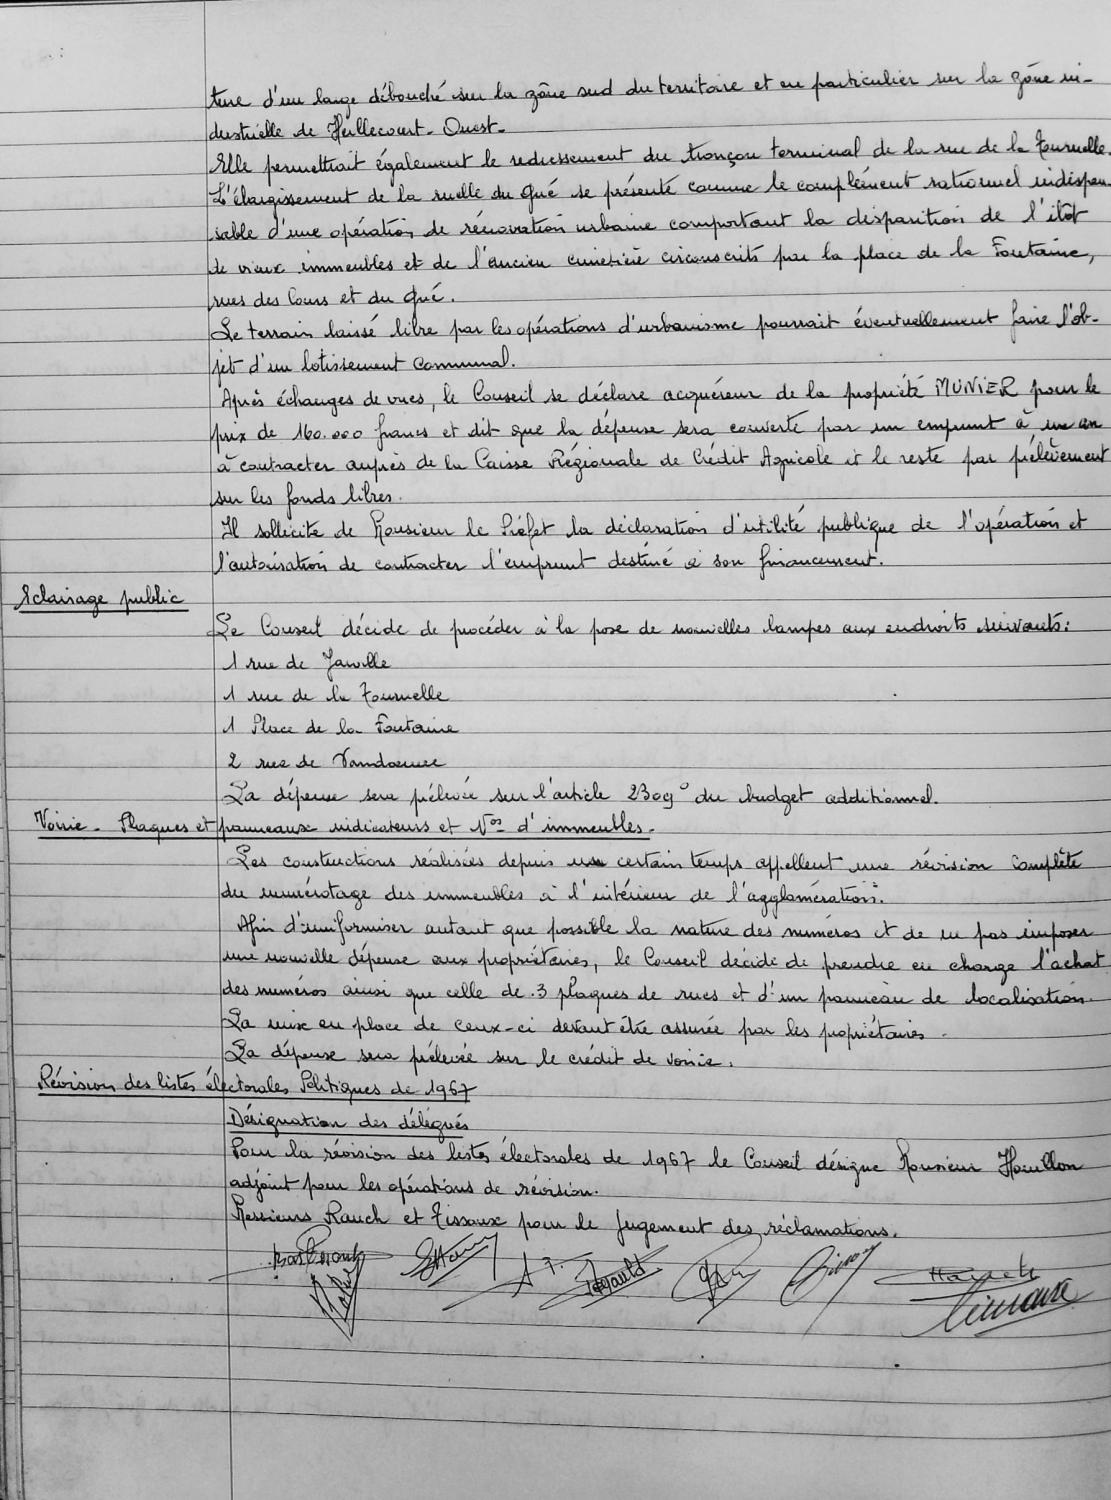 ture d'un large débouché sur la zône sud du territoire et en particulier sur la zône in-
dustrielle de Heillecourt-Ouest.
Elle permettrait également le redressement du tronçon terminal de la rue de la Tournelle.
L'élargissement de la ruelle du Gué se présente comme le complément rationnel indispen
sable d'une opération de rénovation urbaine comportant la disparition de l'ilôt
de vieux immeubles et de l'ancien cimetière circonscrits par la place de la Fontaine,
rues des Cours et du Gué.
Le terrain laissé libre par les opérations d'urbanisme pourrait éventuellement faire l'ob-
jet d'un lotissement communal.
Après échanges de vues, le Conseil se déclare acquéreur de la propriété MUNIER pour le
prix de 160.000 francs et dit que la dépense sera couverte par un emprunt à un an
à contracter auprès de la Caisse Régionale de Crédit Agricole et le reste par prélèvement
sur les fonds libres.
Il sollicite de Monsieur le Préfet la déclaration d'utilité publique de l'opération et
l'autorisation de contracter l'emprunt destiné à son financement.
Eclairage public
Le Conseil décide de procéder à la pose de nouvelles lampes aux endroits suivants:
1 rue de Jarville
1 rue de la Tournelle
1 Place de la Fontaine
2 rue de Vandoeuvre
La dépense sera prélevée sur l'article 2309° du budget additionnel.
Voirie - Plaques et panneaux indicateurs et Nos d'immeubles.
Les constructions réalisées depuis un certain temps appellent une révision complète
du numérotage des immeubles à l'intérieur de l'agglomération.
Afin d'uniformiser autant que possible la nature des numéros et de ne pas imposer
une nouvelle dépense aux propriétaires, le Conseil décide de prendre en charge l'achat
des numéros ainsi que celle de 3 plaques de rues et d'un panneau de localisation.
La mise en place de ceux-ci devant être assurée par les propriétaires.
La dépense sera prélevée sur le crédit de voirie.
Révision des listes électorales Politiques de 1967
Désignation des délégués
Pour la révision des listes électorales de 1967 le Conseil désigne Monsieur Houillon
adjoint pour les opérations de révision.
Messieurs Rauch et Tissoux pour le jugement des réclamations.